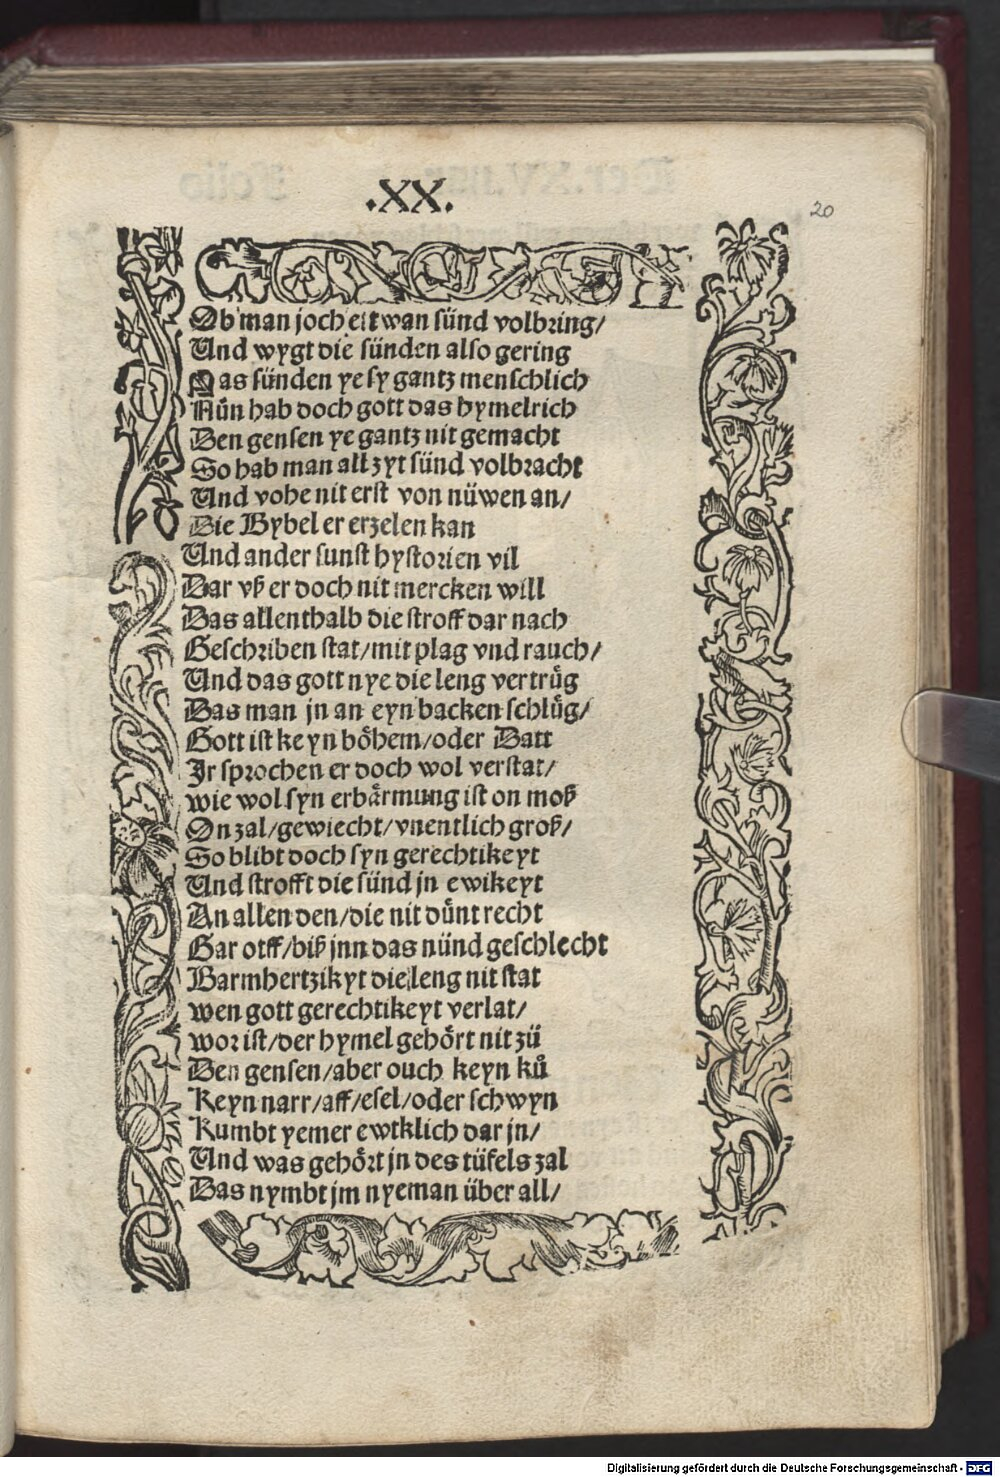 .XX.
20
Ob man joch ettwan sünd volbring/
Und wygt die sünden also gering
Das sünden ye sy gantz menschlich
Nůn hab doch gott das hymelrich
Den gensen ye gantz nit gemacht
So hab man all zyt sünd volbracht
Und vohe nit erst von nüwen an/
Die Bybel er erzelen kan
Und ander sunst hystorien vil
Dar vß er doch nit mercken will
Das allenthalb die stroff dar nach
Geschriben stat/mit plag vnd rauch/
Und das gott nye die leng vertrůg
Das man jn an eyn backen schlůg/
Gott ist keyn böhem/oder Datt
Jr sprochen er doch wol verstat/
wie wol syn erbärmung ist on moß
On zal/gewiecht/vnentlich groß/
So blibt doch syn gerechtikeyt
Und strofft die sünd jn ewikeyt
An allen den/die nit důnt recht
Gar otff/biß jnn das nünd geschlecht
Barmhertzikyt die leng nit stat
wen gott gerechtikeyt verlat/
wor ist/der hymel gehört nit zů
Den gensen/aber ouch keyn ků
Keyn narr/aff/esel/oder schwyn
Kumbt yemer ewtklich dar jn/
Und was gehört jn des tüfels zal
Das nymbt jm nyeman über all/
Digitalisierung gefördert durch die Deutsche Forschungsgemeinschaft - DFG